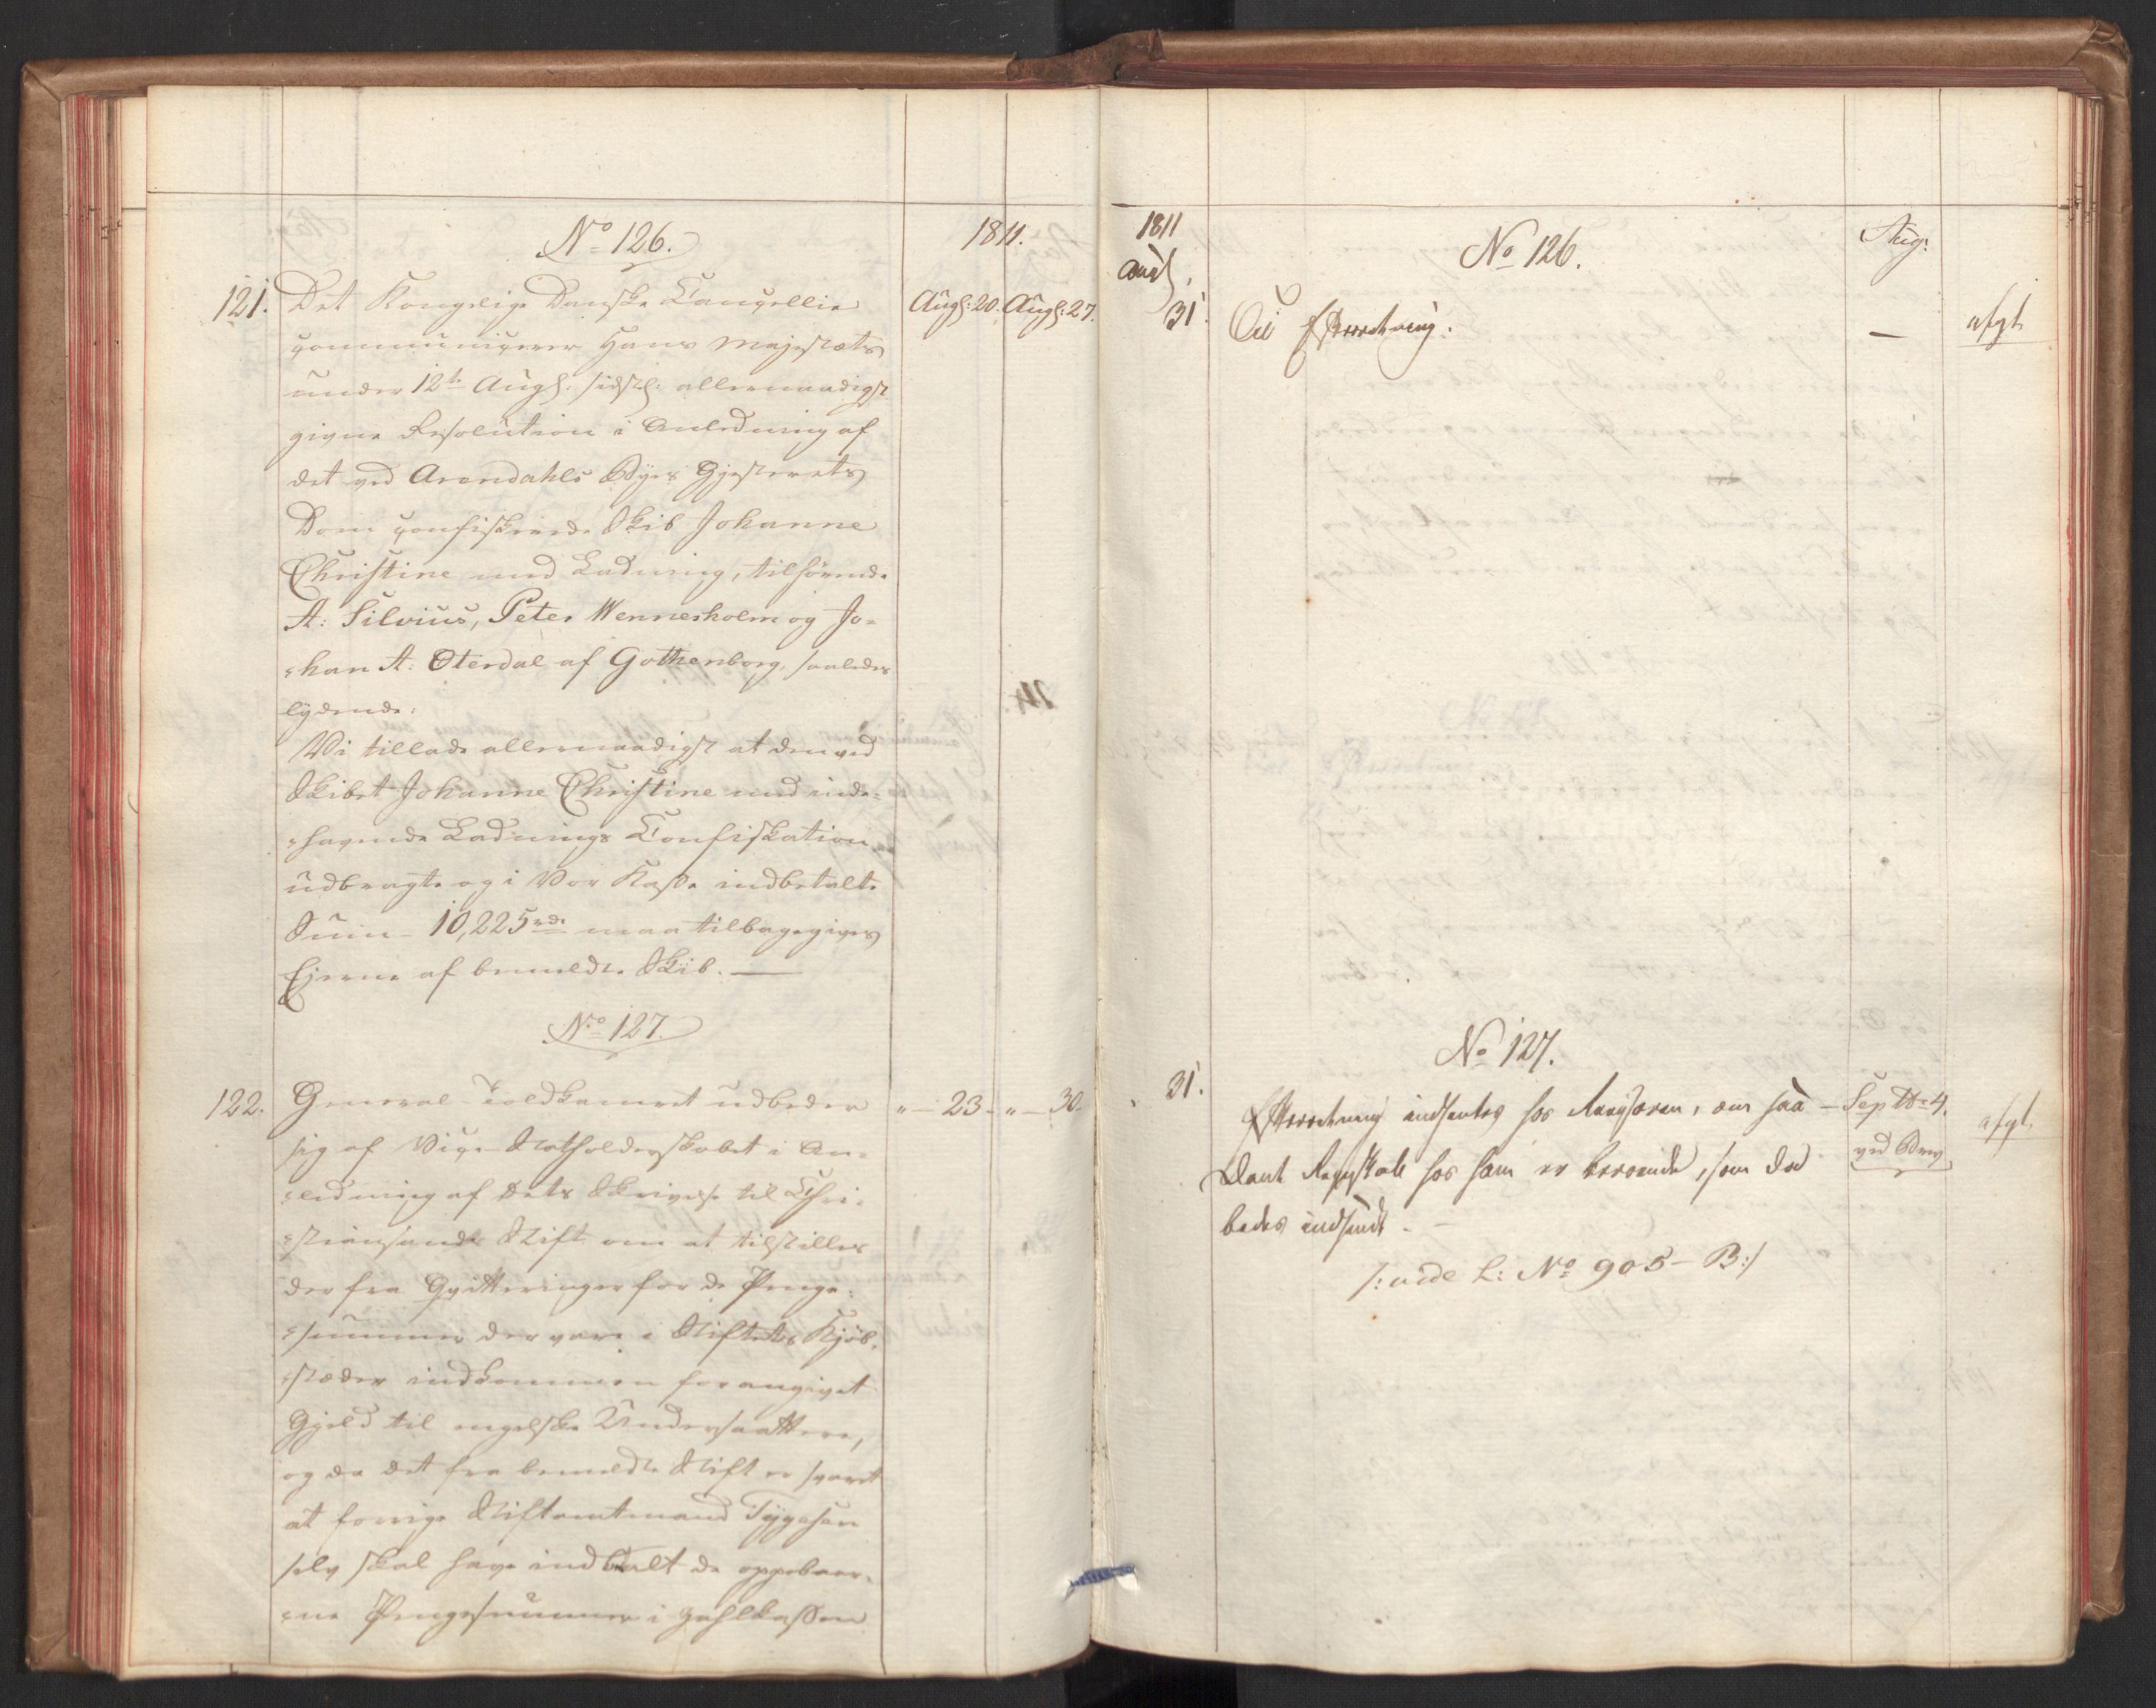 No 126.
1811.
121. Det Kongelige Danske Cancellie Augs: 20. Augs: 27.
communicerer Hans Majestæts
under 12te Augs: sidstl: allernaadigst
givne Resolution i Anledning af
det ved Arendahls Byes Gjesterets
Dom confiskerede Skib Johanne
Christine med Ladning, tilhörende
A: Silvius, Peter Wennerholm og Jo=
=han A: Oterdal af Gothenborg, saaledes
lydende:
Vi tillade allernaadigst at den ved
Skibet Johanne Christine med inde=
=havende Ladnings Confiskation
udbragte og i Vor Kasse indbetalte
Sum 10,225 rd. maa tilbagegives
Ejerne af bemeldte Skib. —
No 127.
122. General-Toldkamret udbeder " — 23 — " — 30.
sig af Vice-Statholderskabet i An=
=ledning af dets Skrivelse til Chri=
=stiansands Stift om at tilstilles
der fra Qvitteringer for de Penge=
=summer der vare i Stiftets Kjöb=
=stæder indkommen for angivet
Gjeld til engelske Undersaattere,
og da det fra bemeldte Stift er svaret
at forrige Stiftamtmand Tygesen
selv skal have indbetalt de oppebaar=
=ne Pengesummer i Zahlkassen
1811
No 126.
Aug:
31. Til Efterretning. — afgt.
No 127.
31. Efterretning indhentes hos Revisoren, om saa — Septbr 4.
dant Regnskab hos ham er beroende, som da ved Brev afgt.
bedes indsendt. —
/: vide L: No 905 — B :/